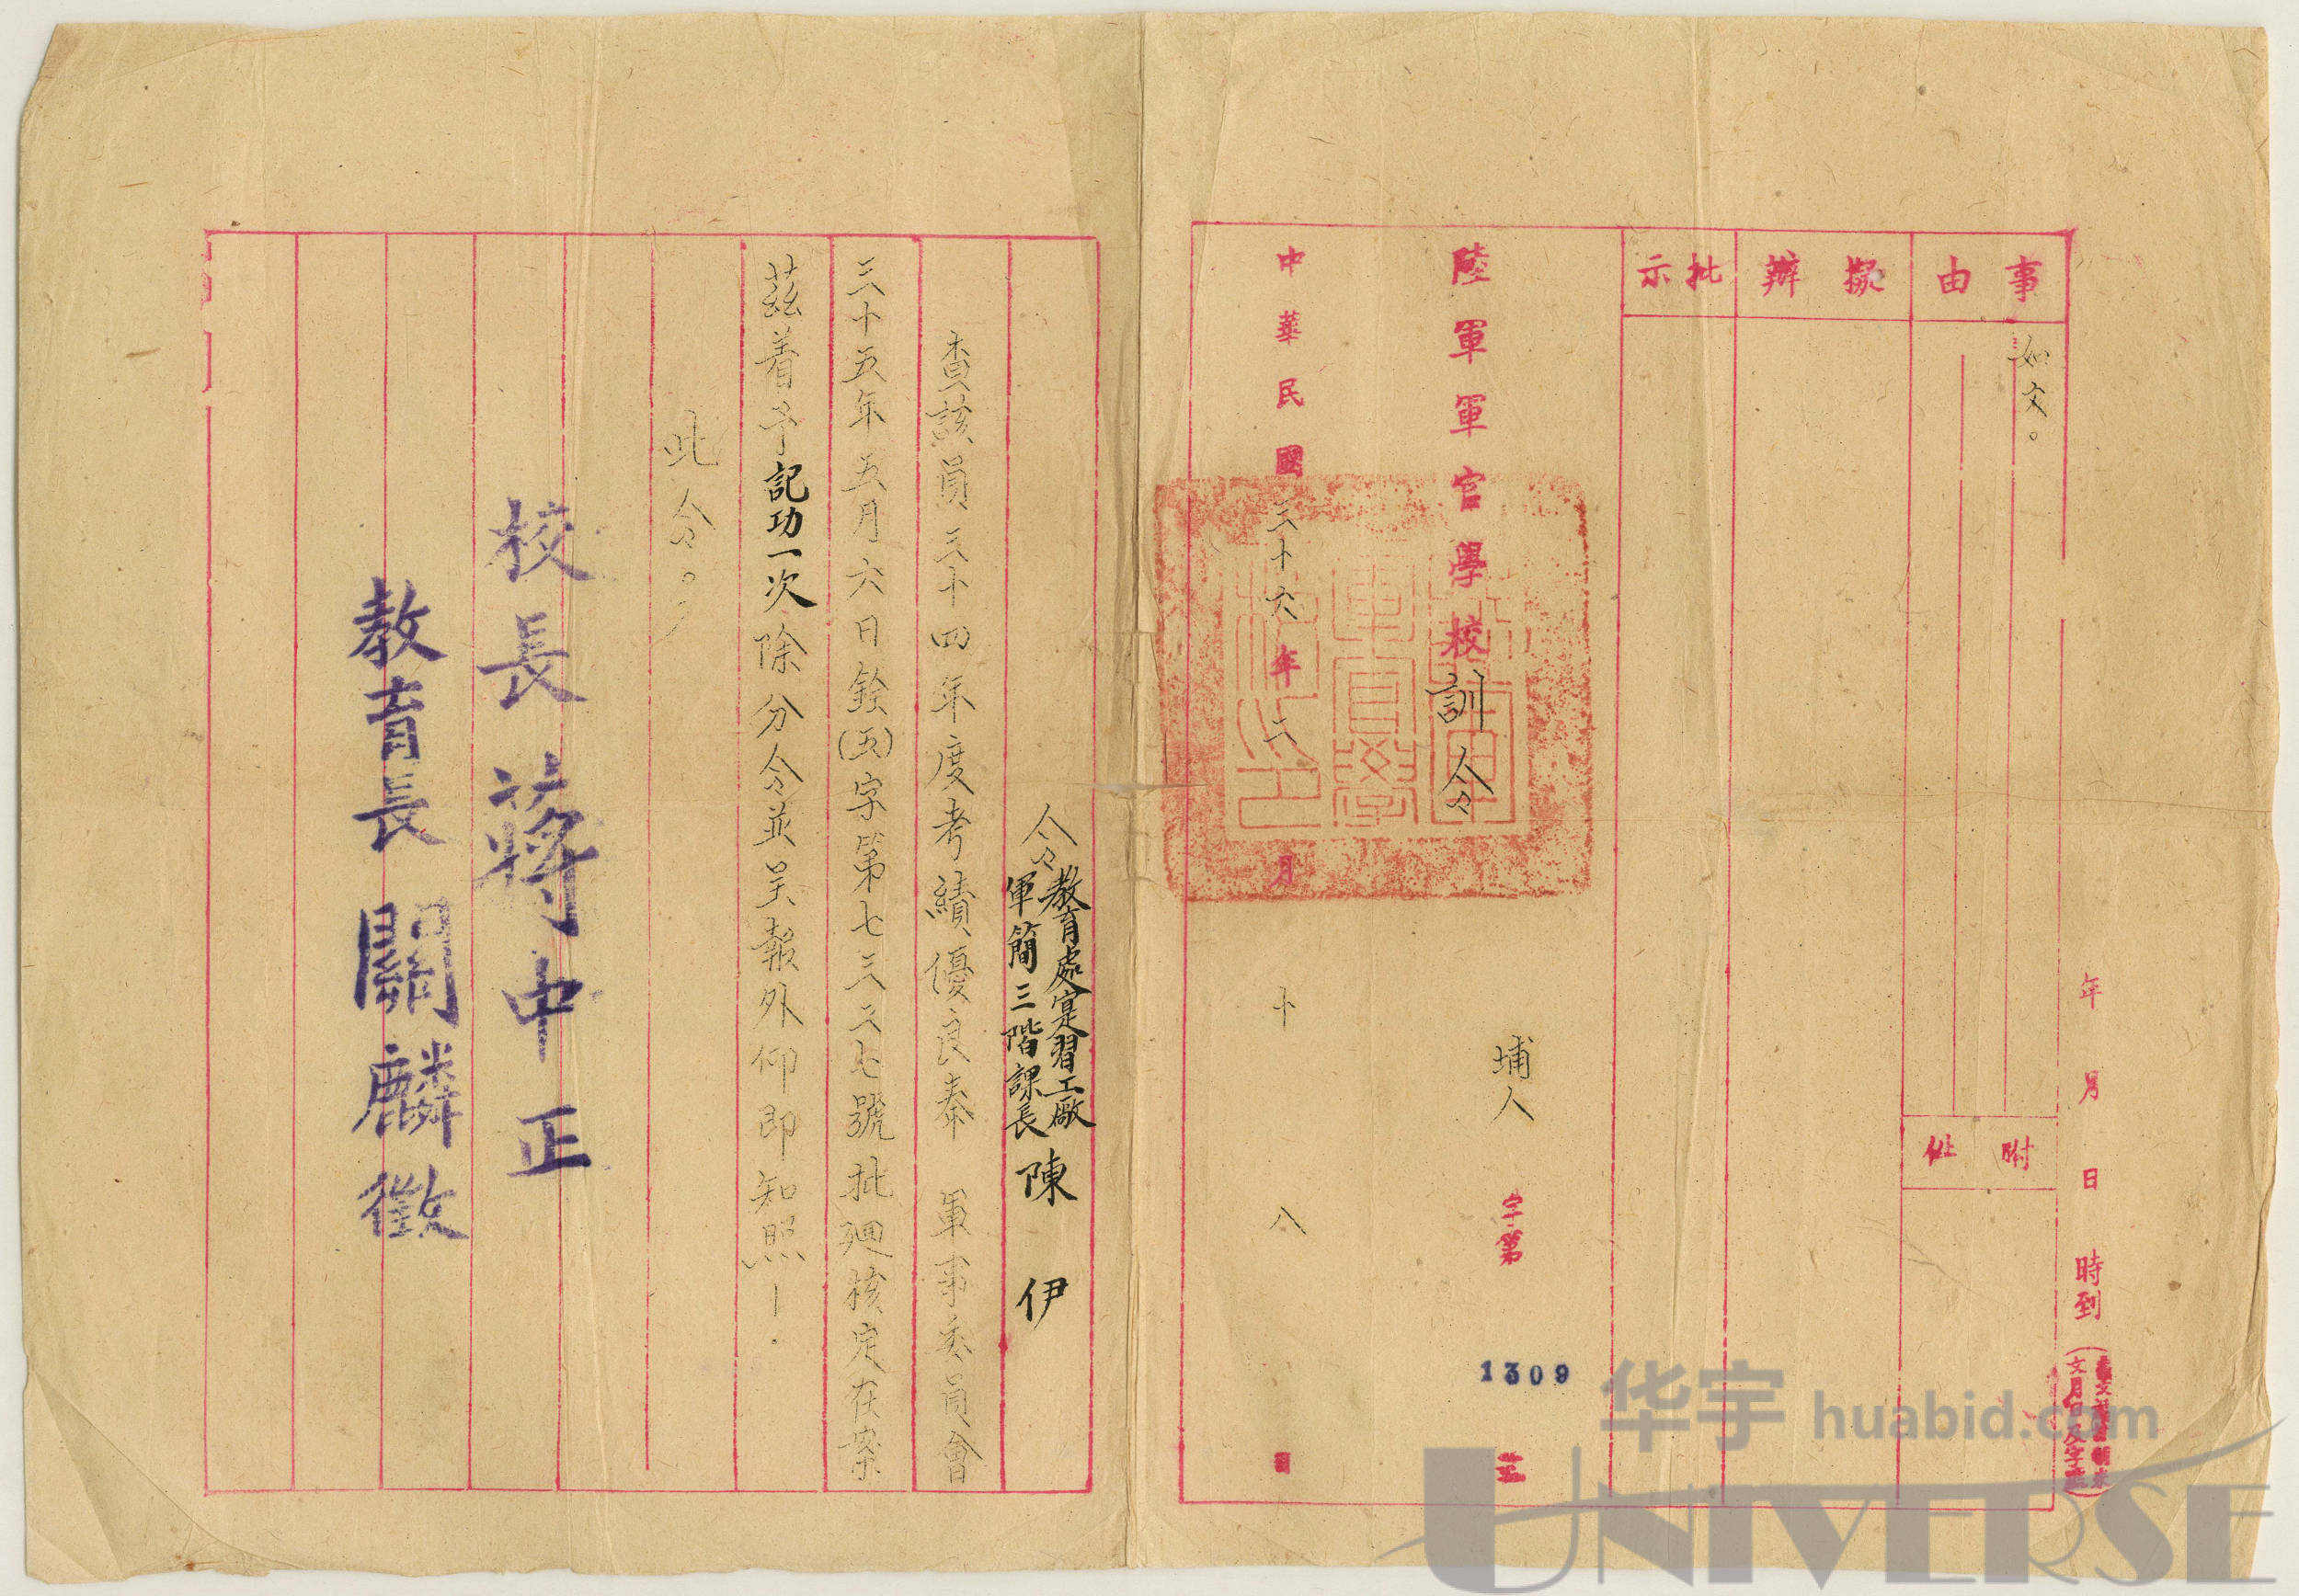 年 月 日 時到
事由
如文。
附件
擬辦
批示
埔人 字第 1309 號
陸軍軍官學校訓令
中華民國三十六年二月十八日
令教育處實習工廠
軍簡三階課長 陳伊
查該員三十四年度考績優良奉 軍事委員會
三十五年五月六日銓(五)字第七三二七號批廻核定在案
茲着予記功一次除分令並呈報外仰即知照—.
此令。
校長蔣中正
教育長關麟徵
华宇 huabid.com
UNIVERSE